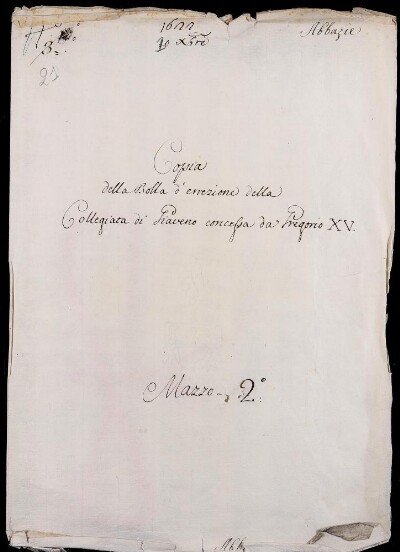 1622
10 Xbre
Abbazie
3
23
Coppia
della Bolla d'errezione della
Collegiata di Giaveno concessa da Gregorio XV.
Mazzo 2º
Abb